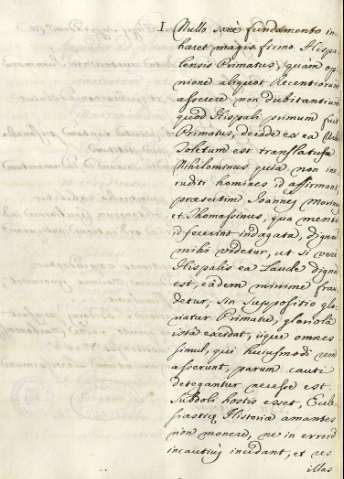 1 Nullo sanè fundamento in-
haret magis firmo Hispa-
lensis Primatus, quàm opi-
nione aliquot Recentiorum
asserere non dubitantium
quod Hispali primum fuit
Primatus, deinde ex ea
Toletum est translatus
Nihilominus quia non in-
eruditi homines id affirmant,
præsertim Joannes Morinus
et Thomassinus, qua mente
id fecerint indagata, dignum
mihi videtur, ut si vere
Hispalis ea Laude digna
est, eâdem minime frau-
detur, sin suppositio glo-
riatur Primatu, gloriola
istâ excidat, iique omnes
simul, qui huiusmodi rem
asserunt, parum cauti
detegantur necesse est.
Subdoli hostis esset, Eccle-
siasticæ Historiæ amantes
non monere, ne in errorem
incautius incidant, et ves
illas